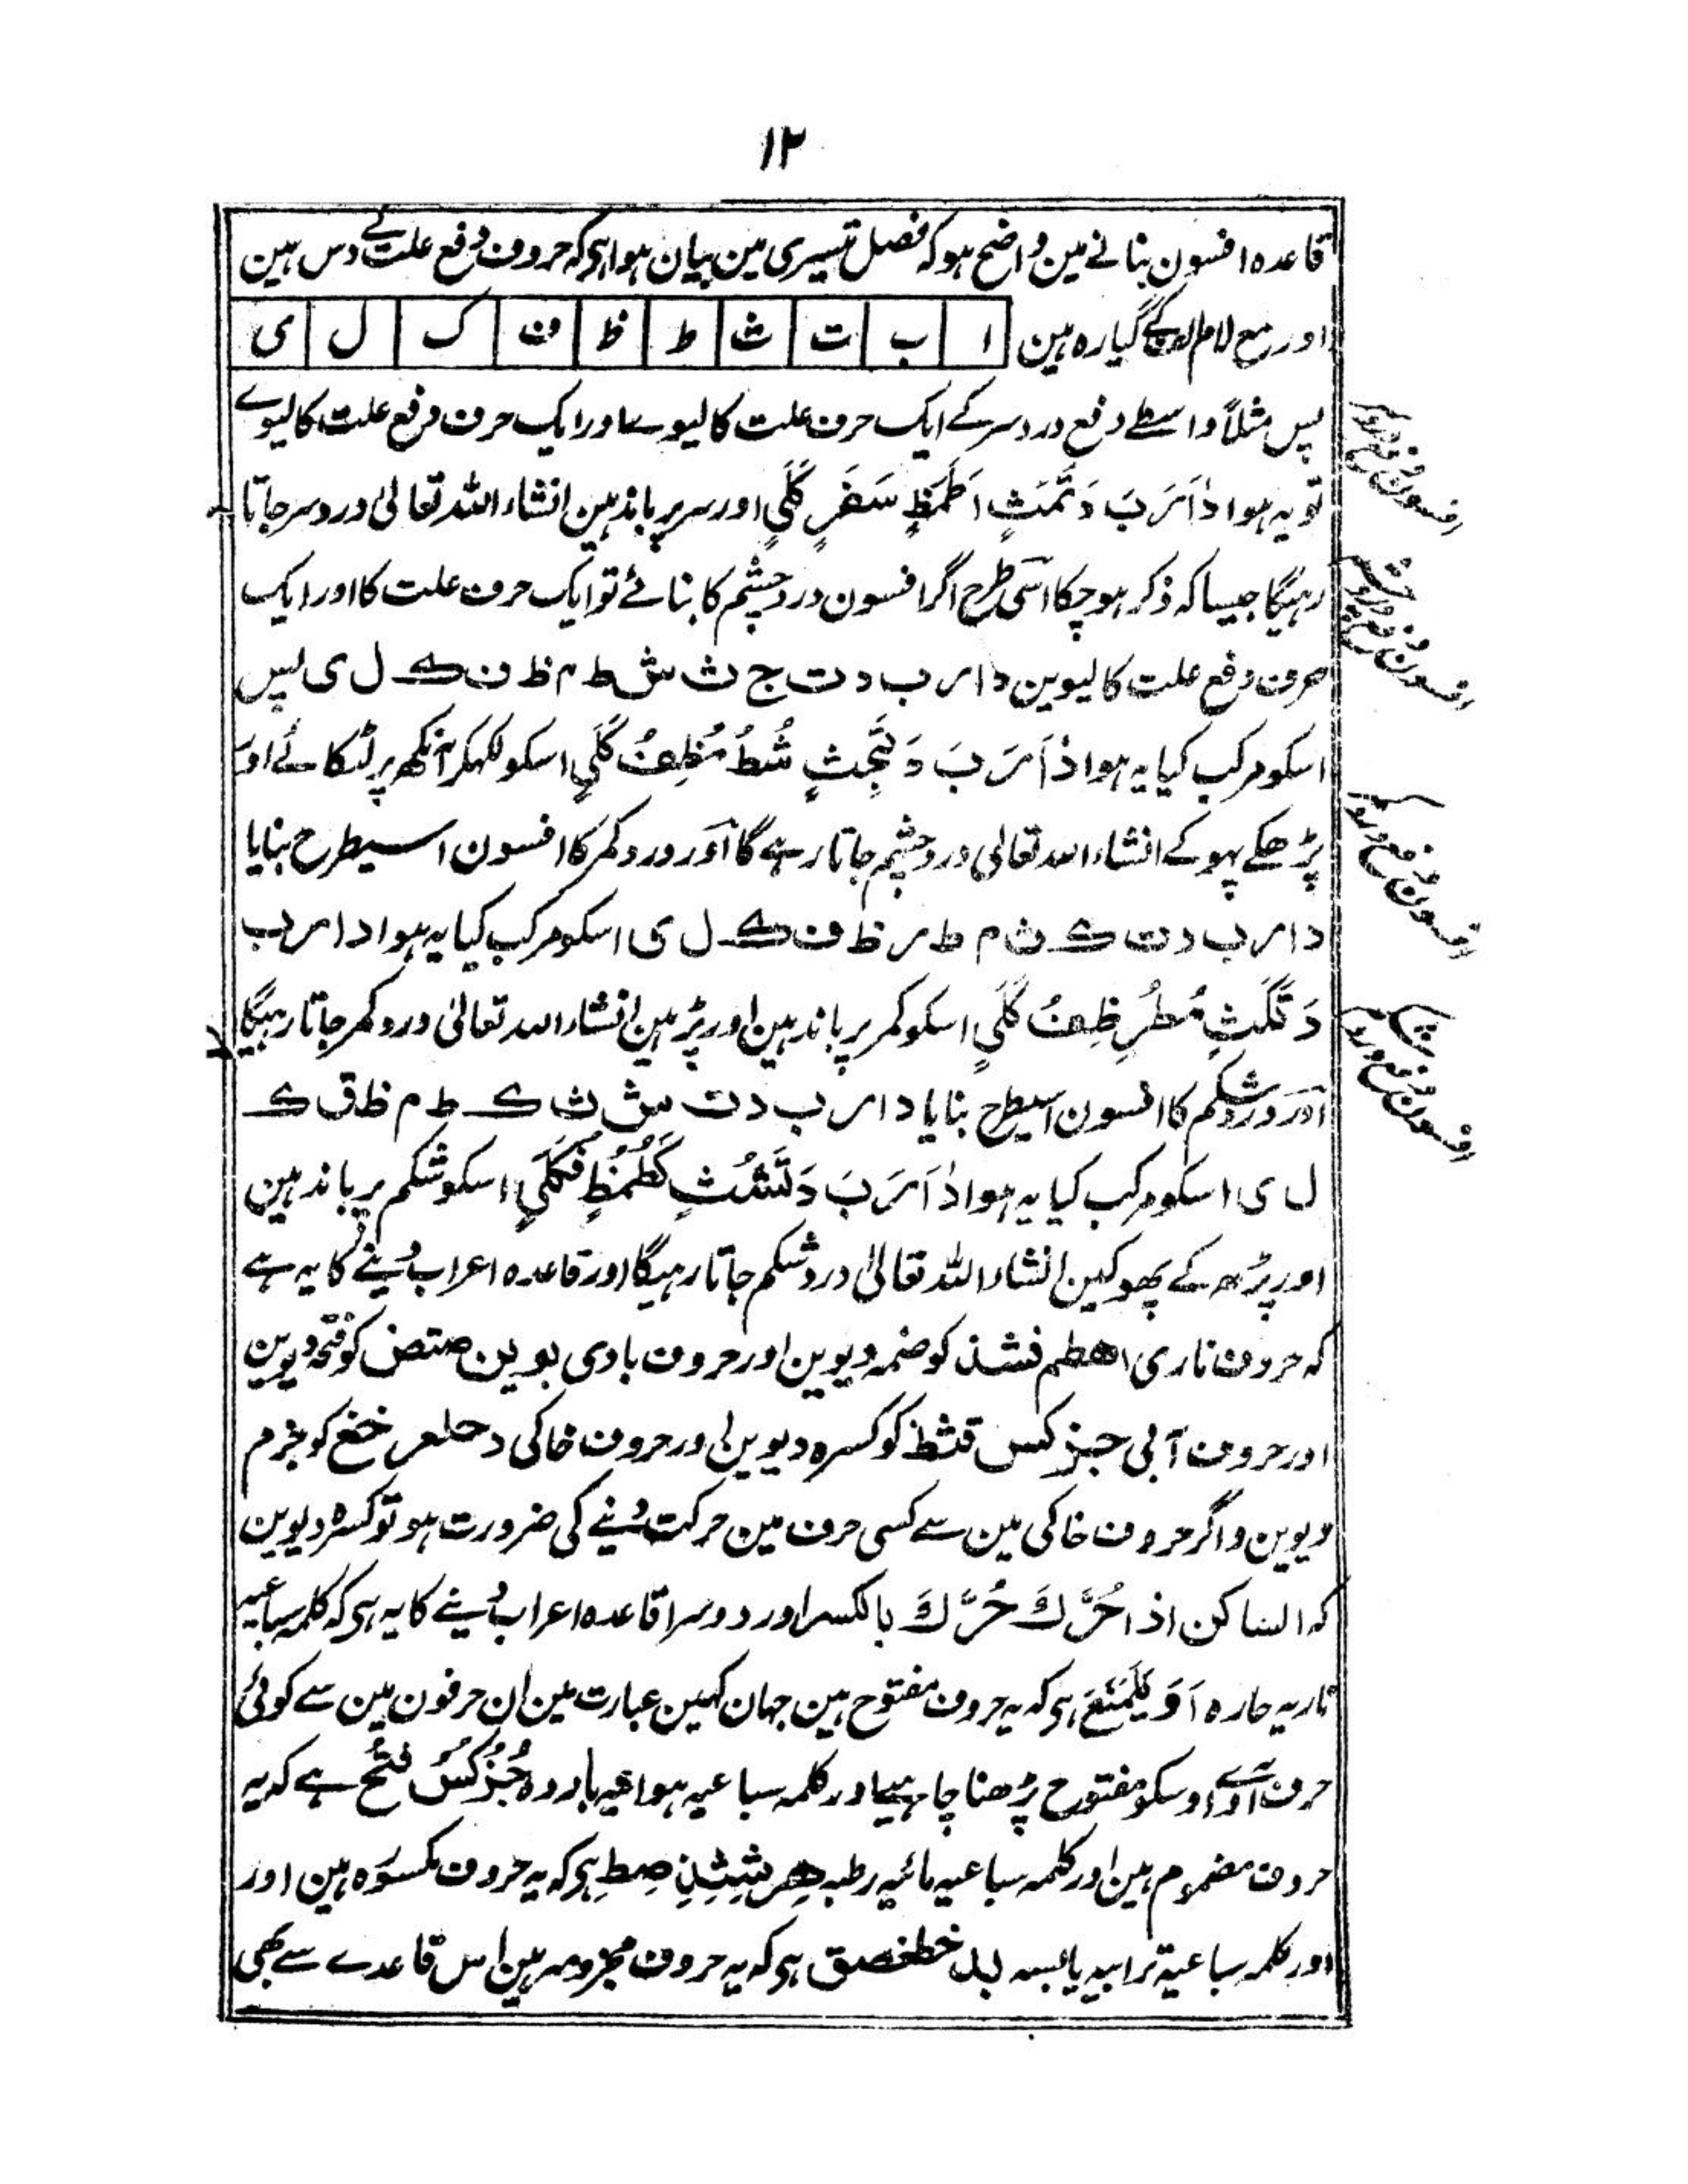 ۱۲
قاعدہ افسون بنانے مین واضح ہو کہ فصل تیسری مین بیان ہوا ہی کہ حروف دفع علت کے دس ہین
اور مع لام الف کے گیارہ ہین ا ب ت ث ط ظ ف ک ل ی
پس مثلاً واسطے دفع درد سر کے ایک حرف علت کا لیوے اور ایک حرف دفع علت کا لیوے
تو یہ ہوا دَاَسَ بَ دَتَمَثٍ اَطَمَظٍ سَفَرٍ کَلَیٍ اور سر پر باندہین انشاء اللہ تعالیٰ درد سر جاتا
رہیگا جیسا کہ ذکر ہو چکا اسی طرح اگر افسون درد چشم کا بنائے تو ایک حرف علت کا اور ایک
حرف دفع علت کا لیوین د ا ر ب د ت ج ث ش ط م ظ ف ک ل ی پس
اسکو مرکب کیا یہ ہوا دَاَرَ بَ دَتَجِثٍ شُطُ مُظِفُ کَلَیٍ اسکو لکہکر آنکھ پر لٹکائے اور
پڑھکے پہوکے انشاء اللہ تعالی درد چشم جاتا رہے گا اور درد کمر کا افسون اسیطرح بنایا
د ا ر ب د ت ک ث م ط ر ظ ف ک ل ی اسکو مرکب کیا یہ ہوا د ا ر ب
دَتَکَثٍ مُطُرِ ظِفُ کَلَیٍ اسکو کمر پر باندہین اور پڑہین انشاء اللہ تعالیٰ درد کمر جاتا رہیگا
اور درد شکم کا افسون اسیطرح بنایا د ا ر ب د ت ش ث ک ط م ظ ق ک
ل ی اسکو مرکب کیا یہ ہوا دَاَرَ بَ دَتَشُثٍ کَطُمُظٍ فَکَلَیٍ اسکو شکم پر باندہین
اور پڑھ کے پھوکین انشاء اللہ تعالیٰ درد شکم جاتا رہیگا اور قاعدہ اعراب دینے کا یہ ہے
کہ حروف ناری اھطم فشذ کو ضمہ دیوین اور حروف بادی بوین صتض کو فتحہ دیوین
اور حروف آبی جز کس قثظ کو کسرہ دیوین اور حروف خاکی دحلعر خغ کو جزم
دیوین و اگر حروف خاکی مین سے کسی حرف مین حرکت دینے کی ضرورت ہو تو کسرہ دیوین
کہ الساکن اذا حُرِّكَ حُرِّكَ بالکسر اور دوسرا قاعدہ اعراب دینے کا یہ ہی کہ کلمہ سباعیہ
ناریہ حارہ اَوَ یَلَمَنَعَ ہی کہ یہ حروف مفتوح ہین جہان کہین عبارت مین ان حرفون مین سے کوئی
حرف آوے اوسکو مفتوح پڑھنا چاہیے اور کلمہ سباعیہ ہوائیہ باردہ جُزُکُسُ فُتُحُ ہے کہ یہ
حروف مضموم ہین اور کلمہ سباعیہ مائیہ رطبہ ھِرِشِثِذِ صِطِ ہی کہ یہ حروف مکسورہ ہین اور
اور کلمہ سباعیۃ ترابیہ یابسہ بدل خطغصق ہی کہ یہ حروف مجزومہ ہین اس قاعدے سے بھی
افسون دفع درد سر
افسون دفع درد چشم
افسون دفع درد کمر
افسون دفع درد شکم